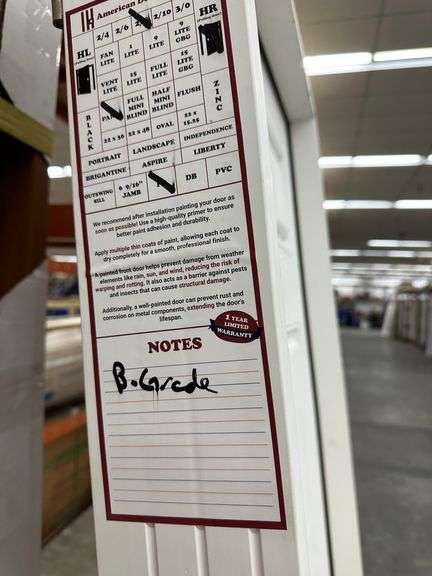 American
HL 2/4 2/6 2/10 3/0 HR
FAN LITE LITE 9 LITE 9 LITE GBG
VENT LITE 15 LITE FULL LITE 15 LITE GBG
BLACK FULL MINI BLIND HALF MINI BLIND FLUSH ZINC
22 x 36 22 x 48 OVAL 22 x 15.25
PORTRAIT LANDSCAPE INDEPENDENCE
BRIGANTINE ASPIRE LIBERTY
OUTSWING SILL 6 9/16" JAMB DB PVC
We recommend after installation painting your door as
soon as possible! Use a high-quality primer to ensure
better paint adhesion and durability.
Apply multiple thin coats of paint, allowing each coat to
dry completely for a smooth, professional finish.
A painted front door helps prevent damage from weather
elements like rain, sun, and wind, reducing the risk of
warping and rotting. It also acts as a barrier against pests
and insects that can cause structural damage.
Additionally, a well-painted door can prevent rust and
corrosion on metal components, extending the door's
lifespan.
1 YEAR
LIMITED
WARRANTY
NOTES
B.Grade